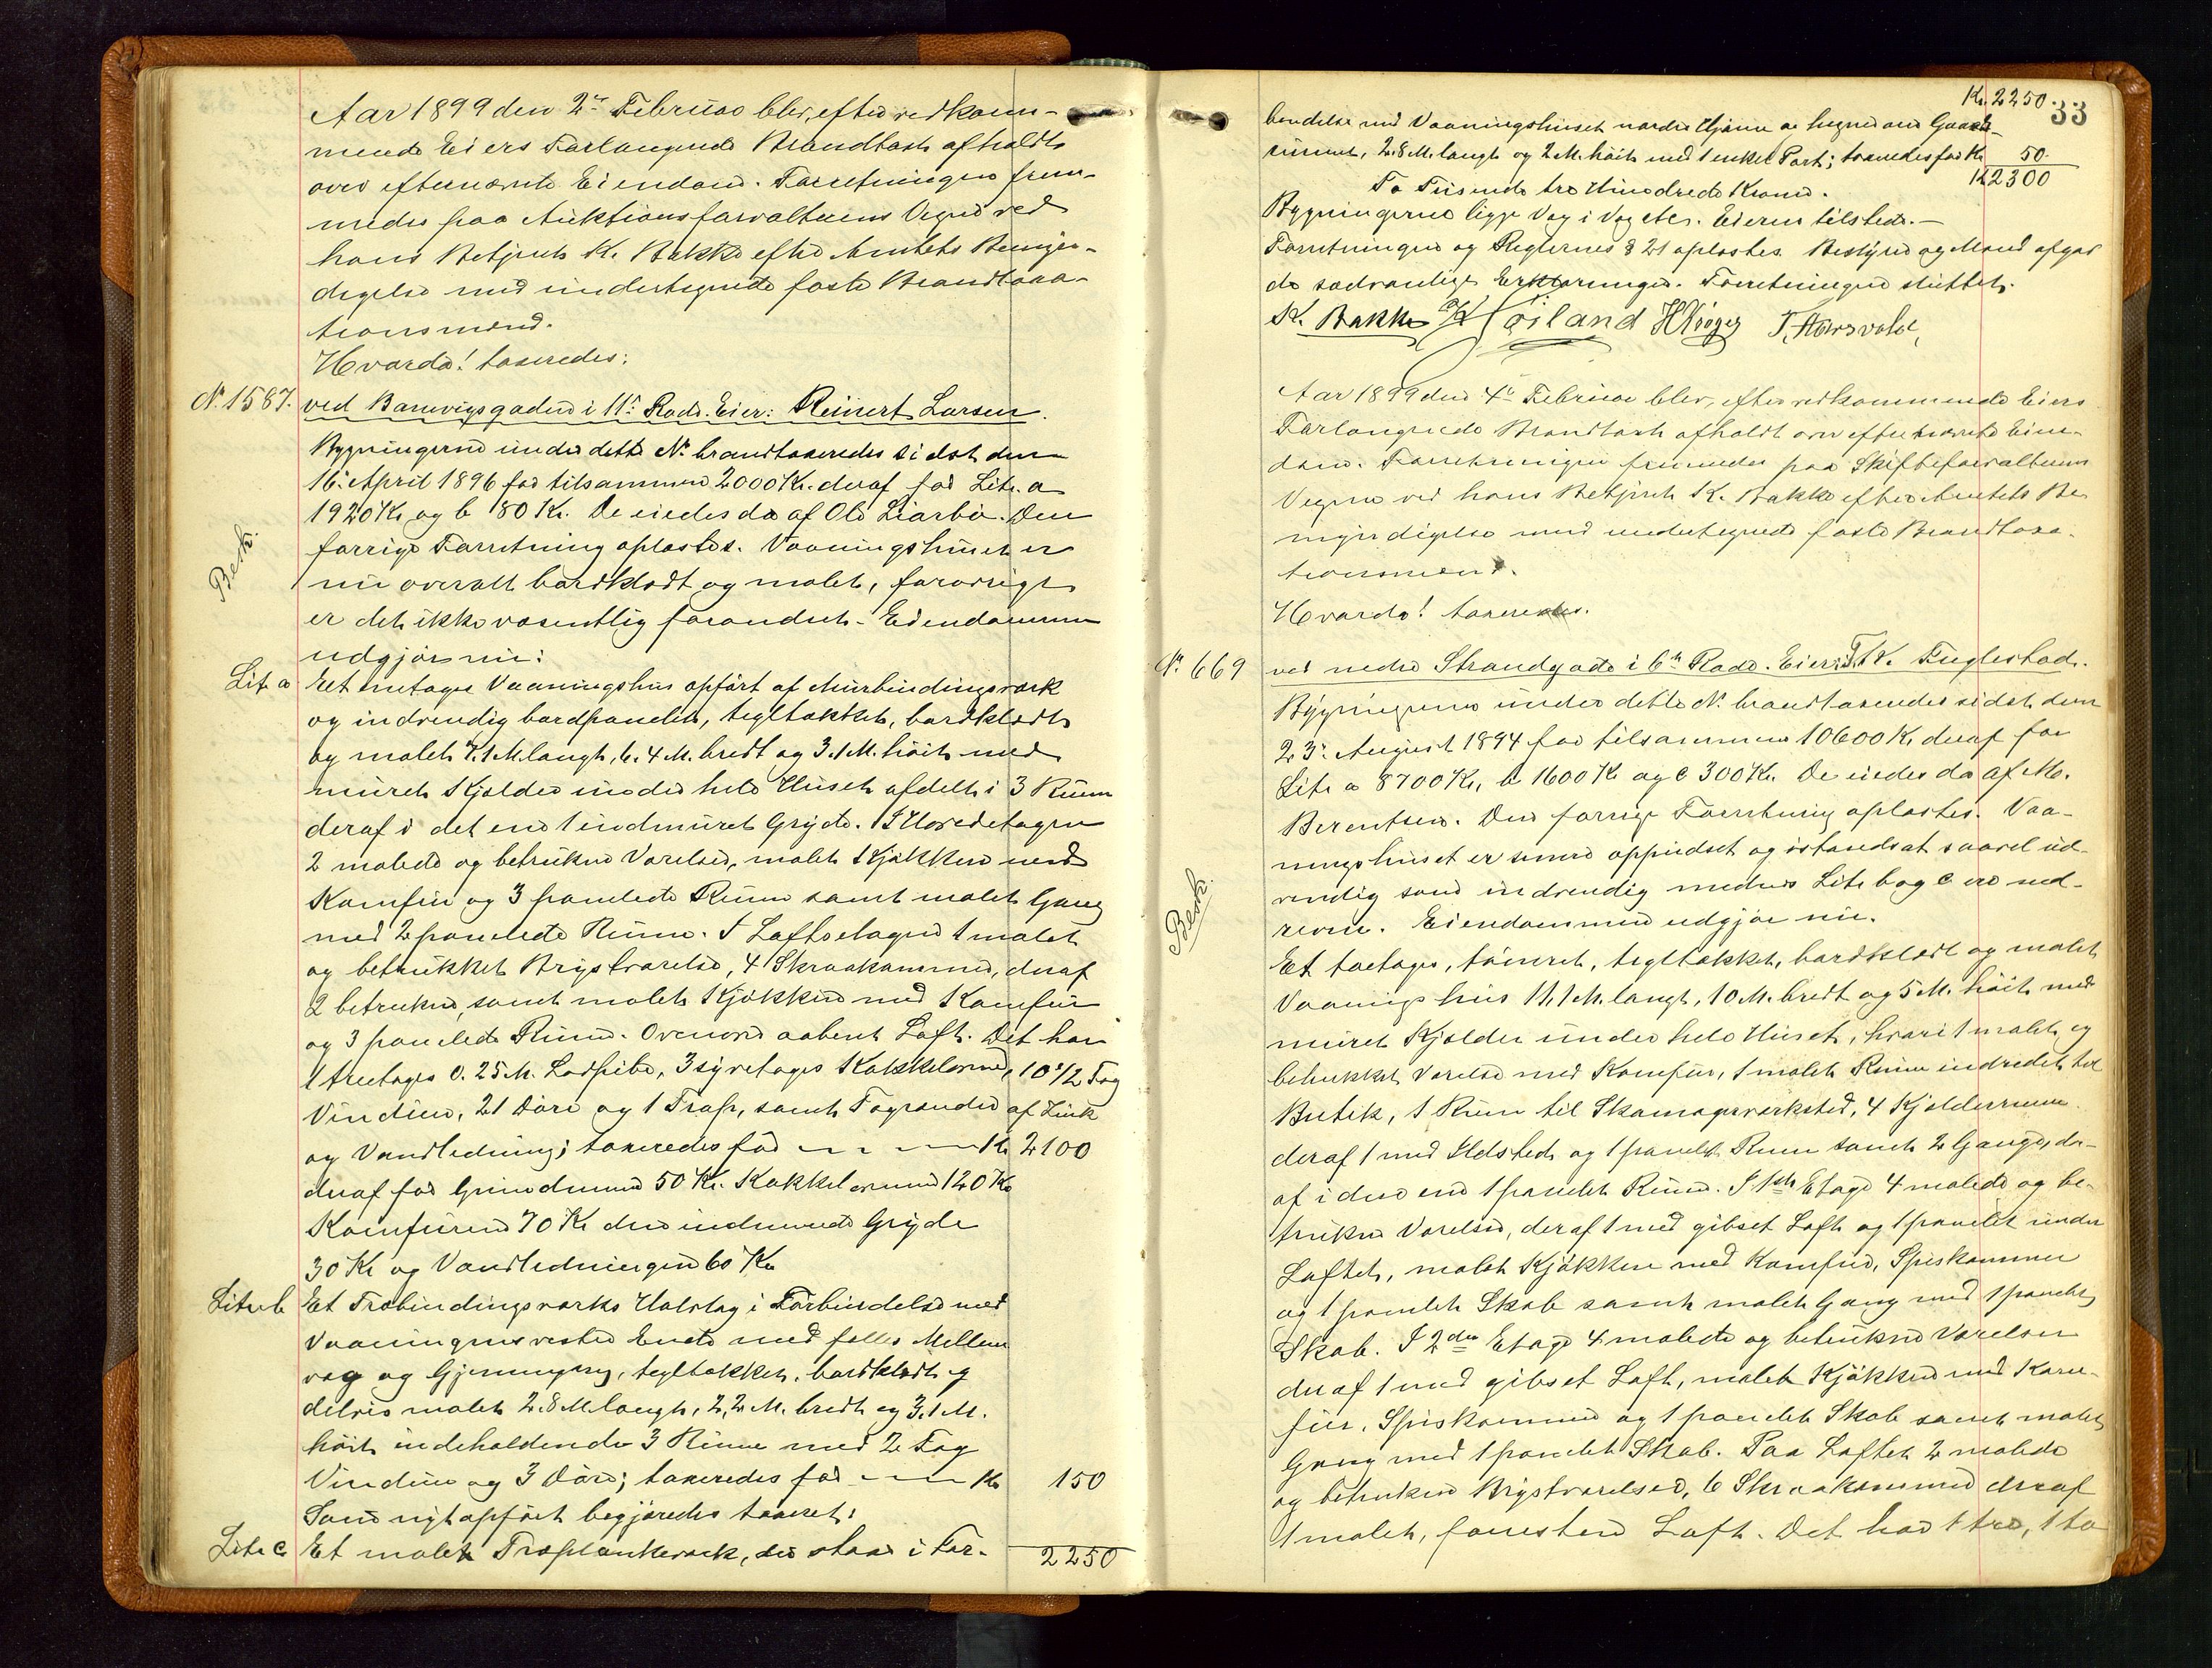 Aar 1899 den 2den Februar blev, efter vedkom-
mende Eiers Forlangende Brandtaxt afholdt
over efternævnte Eiendom. Forretningen frem-
medes paa Auktionsforvalterens Vegne ved
hans Betjent K. Bakke efter Amtets Bemyn-
digelse med undertegnede faste Brandtaxa-
tionsmænd.
Hvorda! taxeredes:
No. 1587. ved Banevigsgaden i 11te Rode. Eier: Reinert Larsen.
Bygningerne under dette No. brandtaxeredes sidst den
16. April 1896 for tilsammen 2000 Kr. deraf for Litr. a
1920 Kr og b 80 Kr. De eiedes da af Ole Liarbø. Den
forrige Forretning oplæstes. Vaaningshuset er
nu overalt bordklædt og malet, forøvrigt
er det ikke væsentlig forandret. Eiendommen
Besk.
udgjør nu:
Litr a Et enetages Vaaningshus opført af Murbindingsværk
og indvendig bordpanelet, tegltækket, bordklædt
og malet 7.1 M. langt, 6.4 M. bredt og 3.1 M. høit med
muret Kjelder under hele Huset afdelt i 3 Rum
deraf i det ene 1 indmuret Gryde. I Hovedetagen
2 malede og betrukne Værelser, malet Kjøkken med
Komfur og 3 panelede Rum samt malet Gang
med 2 panelede Rum. I Loftsetagen 1 malet
og betrukket Brystværelse, 4 Skraakammere, deraf
2 betrukne, samt malet Kjøkken med Komfur
og 3 panelede Rum. Ovenover aabent Loft. Det har
1 treetages 0.25 M. Lodpibe, 3 syvetages Kakkelovne, 10 1/2 Fag
Vinduer, 21 Døre og 1 Trap, samt Tagrender af Zink
og Vandledning; taxeredes for Kr 2100
deraf for Grundmuren 50 Kr. Kakkelovnene 120 Kr
Komfurene 70 Kr den indmurede Gryde
30 Kr og Vandledningen 60 Kr
Litr b Et Træbindingsværks Halvtag i Forbindelse med
Vaaningens vestre Ende med fælles Mellem
væg og Gjennemgang, tegltækket, bordklædt og
delvis malet 2.8 M. langt, 2,2 M. bredt og 3.1 M.
høit indeholdende 3 Rum med 2 Fag
Vinduer og 3 Døre; taxeredes for Kr 150
Som nyt opført begjæredes taxeret:
Litr c Et malet Træplankeværk, der staar i For- 2250
Kr. 2250. 33
bindelse med Vaaningshusets nordre Hjørne og hegner om Gaards-
rummet, 2.8 M. langt og 2 M. høit med 1 enkel Port; taxeredes for Kr 50.
Kr 2300
To Tusinde tre Hundrede Kroner.
Bygningerne ligge Væg i Væg etc. Eieren tilstede. —
Forretningen og Reglernes § 21 oplæstes. Bestyrer og Mænd afgav
de sædvanlige Erklæringer. Forretningen sluttet.
K. Bakke Høiland H Kröger T. Aarsvold,
Aar 1899 den 4de Februar blev, efter vedkommende Eiers
Forlangende Brandtaxt afholdt over efternævnte Eien-
dom. Forretningen fremmedes paa Skifteforvalterens
Vegne ved hans Betjent K. Bakke efter Amtets Be
myndigelse med undertegnede faste Brandtaxa-
tionsmænd.
Hvorda! taxeredes.
No. 669 ved nedre Strandgade i 6te Rode. Eier: T. K. Fuglestad.
Bygningerne under dette No. brandtaxeredes sidst den
23. August 1894 for tilsammen 10600 Kr. deraf for
Litr a 8700 Kr, b 1600 Kr og c 300 Kr. De eiedes da af M.
Berentsen. Den forrige Forretning oplæstes. Vaa-
ningshuset er senere oppudset og istandsat saavel ud-
vendig som indvendig medens Litr b og c ere ned-
Besk.
revne. Eiendommen udgjør nu.
Et toetages, tømret, tegltækket, bordklædt og malet
Vaaningshus 11.1 M. langt, 10 M. bredt og 5 M. høit med
muret Kjelder under hele Huset, hvori 1 malet og
betrukket Værelse med Komfur, 1 malet Rum indredet til
Butik, 1 Rum til Skomagerværksted, 4 Kjelderrum
deraf 1 med Ildsted og 1 panelet Rum samt 2 Gange, der-
af i den ene 1 panelet Rum. I 1ste Etage 4 malede og be-
trukne Værelser, deraf 1 med gibset Loft og 1 panelet under
Loftet, malet Kjøkken med Komfur, Spiskammer
og 1 panelet Skab samt malet Gang med 1 panelet
Skab. I 2den Etage 4 malede og betrukne Værelser
deraf 1 med gibset Loft, malet Kjøkken med Kom-
fur, Spiskammer og 1 panelet Skab samt malet
Gang med 1 panelet Skab. Paa Loftet 2 malede
og betrukne Brystværelser, 6 Skraakammere deraf
1 malet, forresten Loft. Det har 1 tre, 1 to